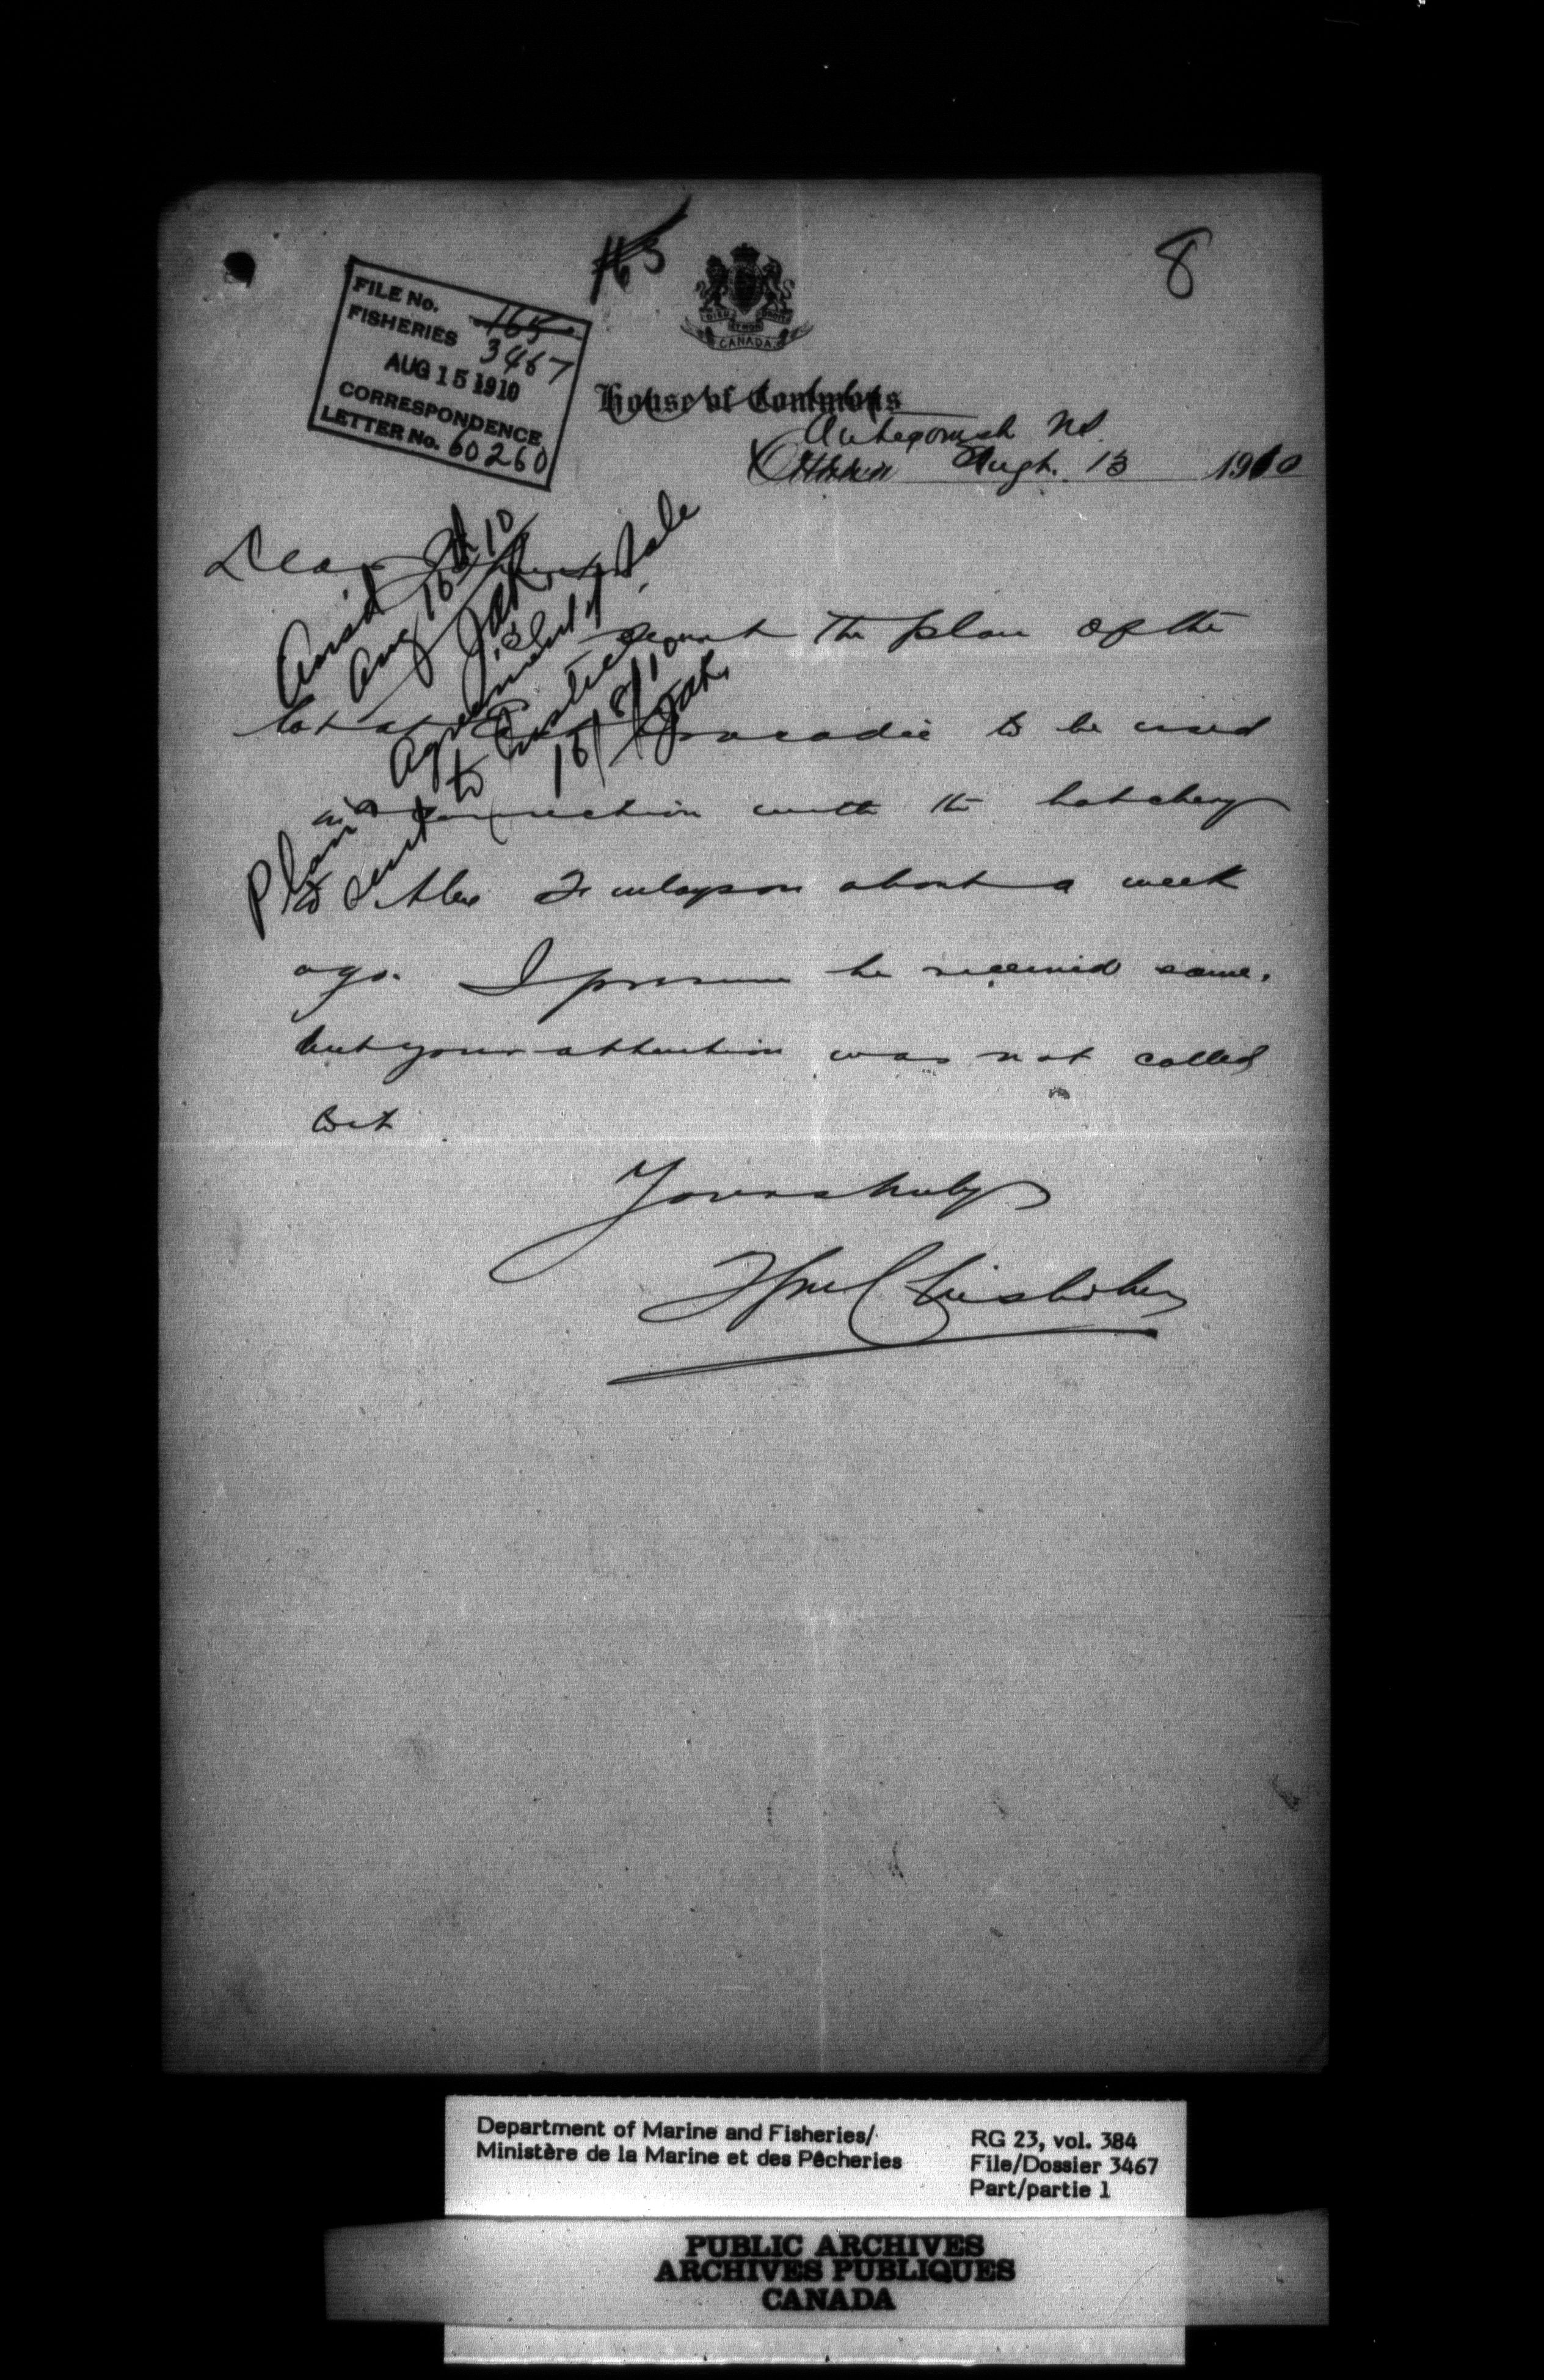 165
8
FILE No. 165
FISHERIES 3467
AUG 15 1910
CORRESPONDENCE
LETTER No. 60260
DIEU ET MON DROIT
CANADA
House of Commons
Antigonish NS.
Ottawa Augt. 13 1910
Dear
Ansd
Aug 16th 10
sent the plan of the
lot at Tracadie to be used
in connection with the hatchery
to Alex Finlayson about a week
ago. I presume he received same.
but your attention was not called
to it
Yours truly
Wm Chisholm
Plan & Agreement of Sale
sent to Justice
16/8/10
Department of Marine and Fisheries/
Ministère de la Marine et des Pêcheries
RG 23, vol. 384
File/Dossier 3467
Part/partie 1
PUBLIC ARCHIVES
ARCHIVES PUBLIQUES
CANADA